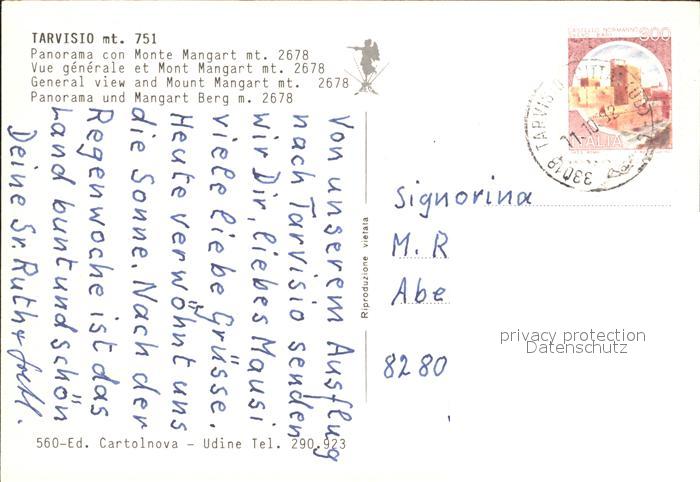 TARVISIO mt. 751
Panorama con Monte Mangart mt. 2678
Vue générale et Mont Mangart mt. 2678
General view and Mount Mangart mt. 2678
Panorama und Mangart Berg m. 2678
Von unserem Ausflug
nach Tarvisio senden
wir Dir, liebes Mausi
viele liebe Grüsse.
Heute verwöhnt uns
die Sonne. Nach der
Regenwoche ist das
Land bunt und schön
Deine Sr. Ruth
560-Ed. Cartolnova - Udine Tel. 290.923
Riproduzione vietata
CASTELLO NORMANNO
300
ITALIA
33018 TARVIS
11.10.92
Signorina
M. R
Abe
8280
privacy protection
Datenschutz